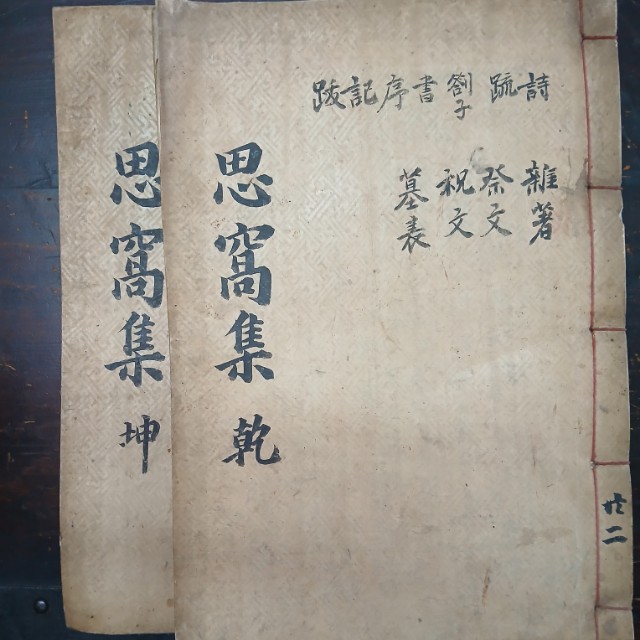 詩 疏 劄子 書 序 記 跋
雜著 祭文 祝文 墓表
思窩集 乾
思窩集 坤
共二